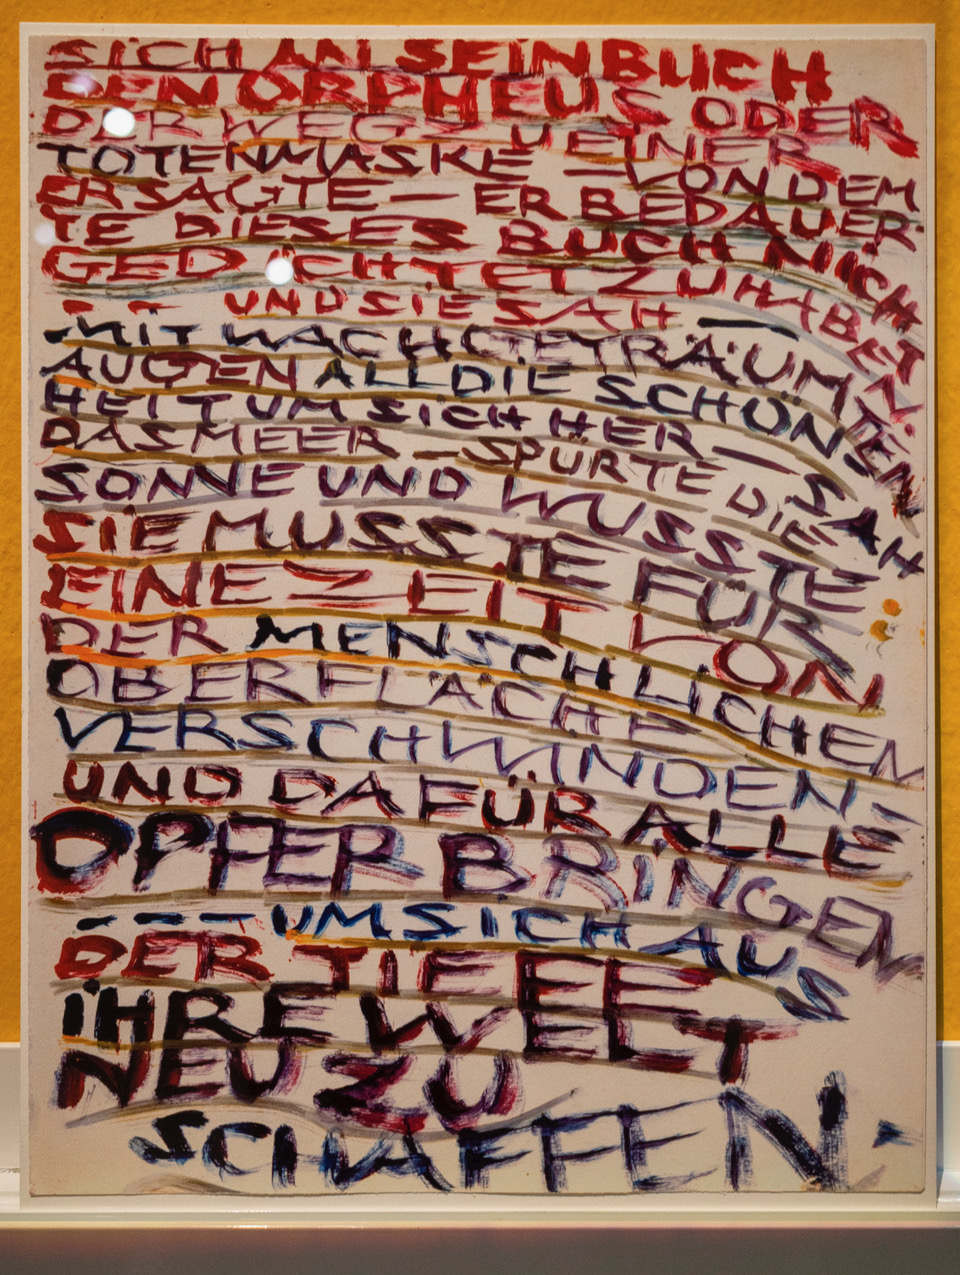 SICH AN SEIN BUCH
DEN ORPHEUS ODER
DER WEG ZU EINER
TOTENMASKE — VON DEM
ER SAGTE — ER BEDAUER-
TE DIESES BUCH NICHT
GEDICHTET ZU HABEN.
- - UND SIE SAH —
- MIT WACHGETRÄUMTEN
AUGEN ALL DIE SCHÖN-
HEIT UM SICH HER — SAH
DAS MEER — SPÜRTE DIE
SONNE UND WUSSTE
SIE MUSSTE FÜR
EINE ZEIT VON
DER MENSCHLICHEN
OBERFLÄCHE
VERSCHWINDEN —
UND DAFÜR ALLE
OPFER BRINGEN
- - - UM SICH AUS
DER TIEFE
IHRE WELT
NEU ZU
SCHAFFEN.